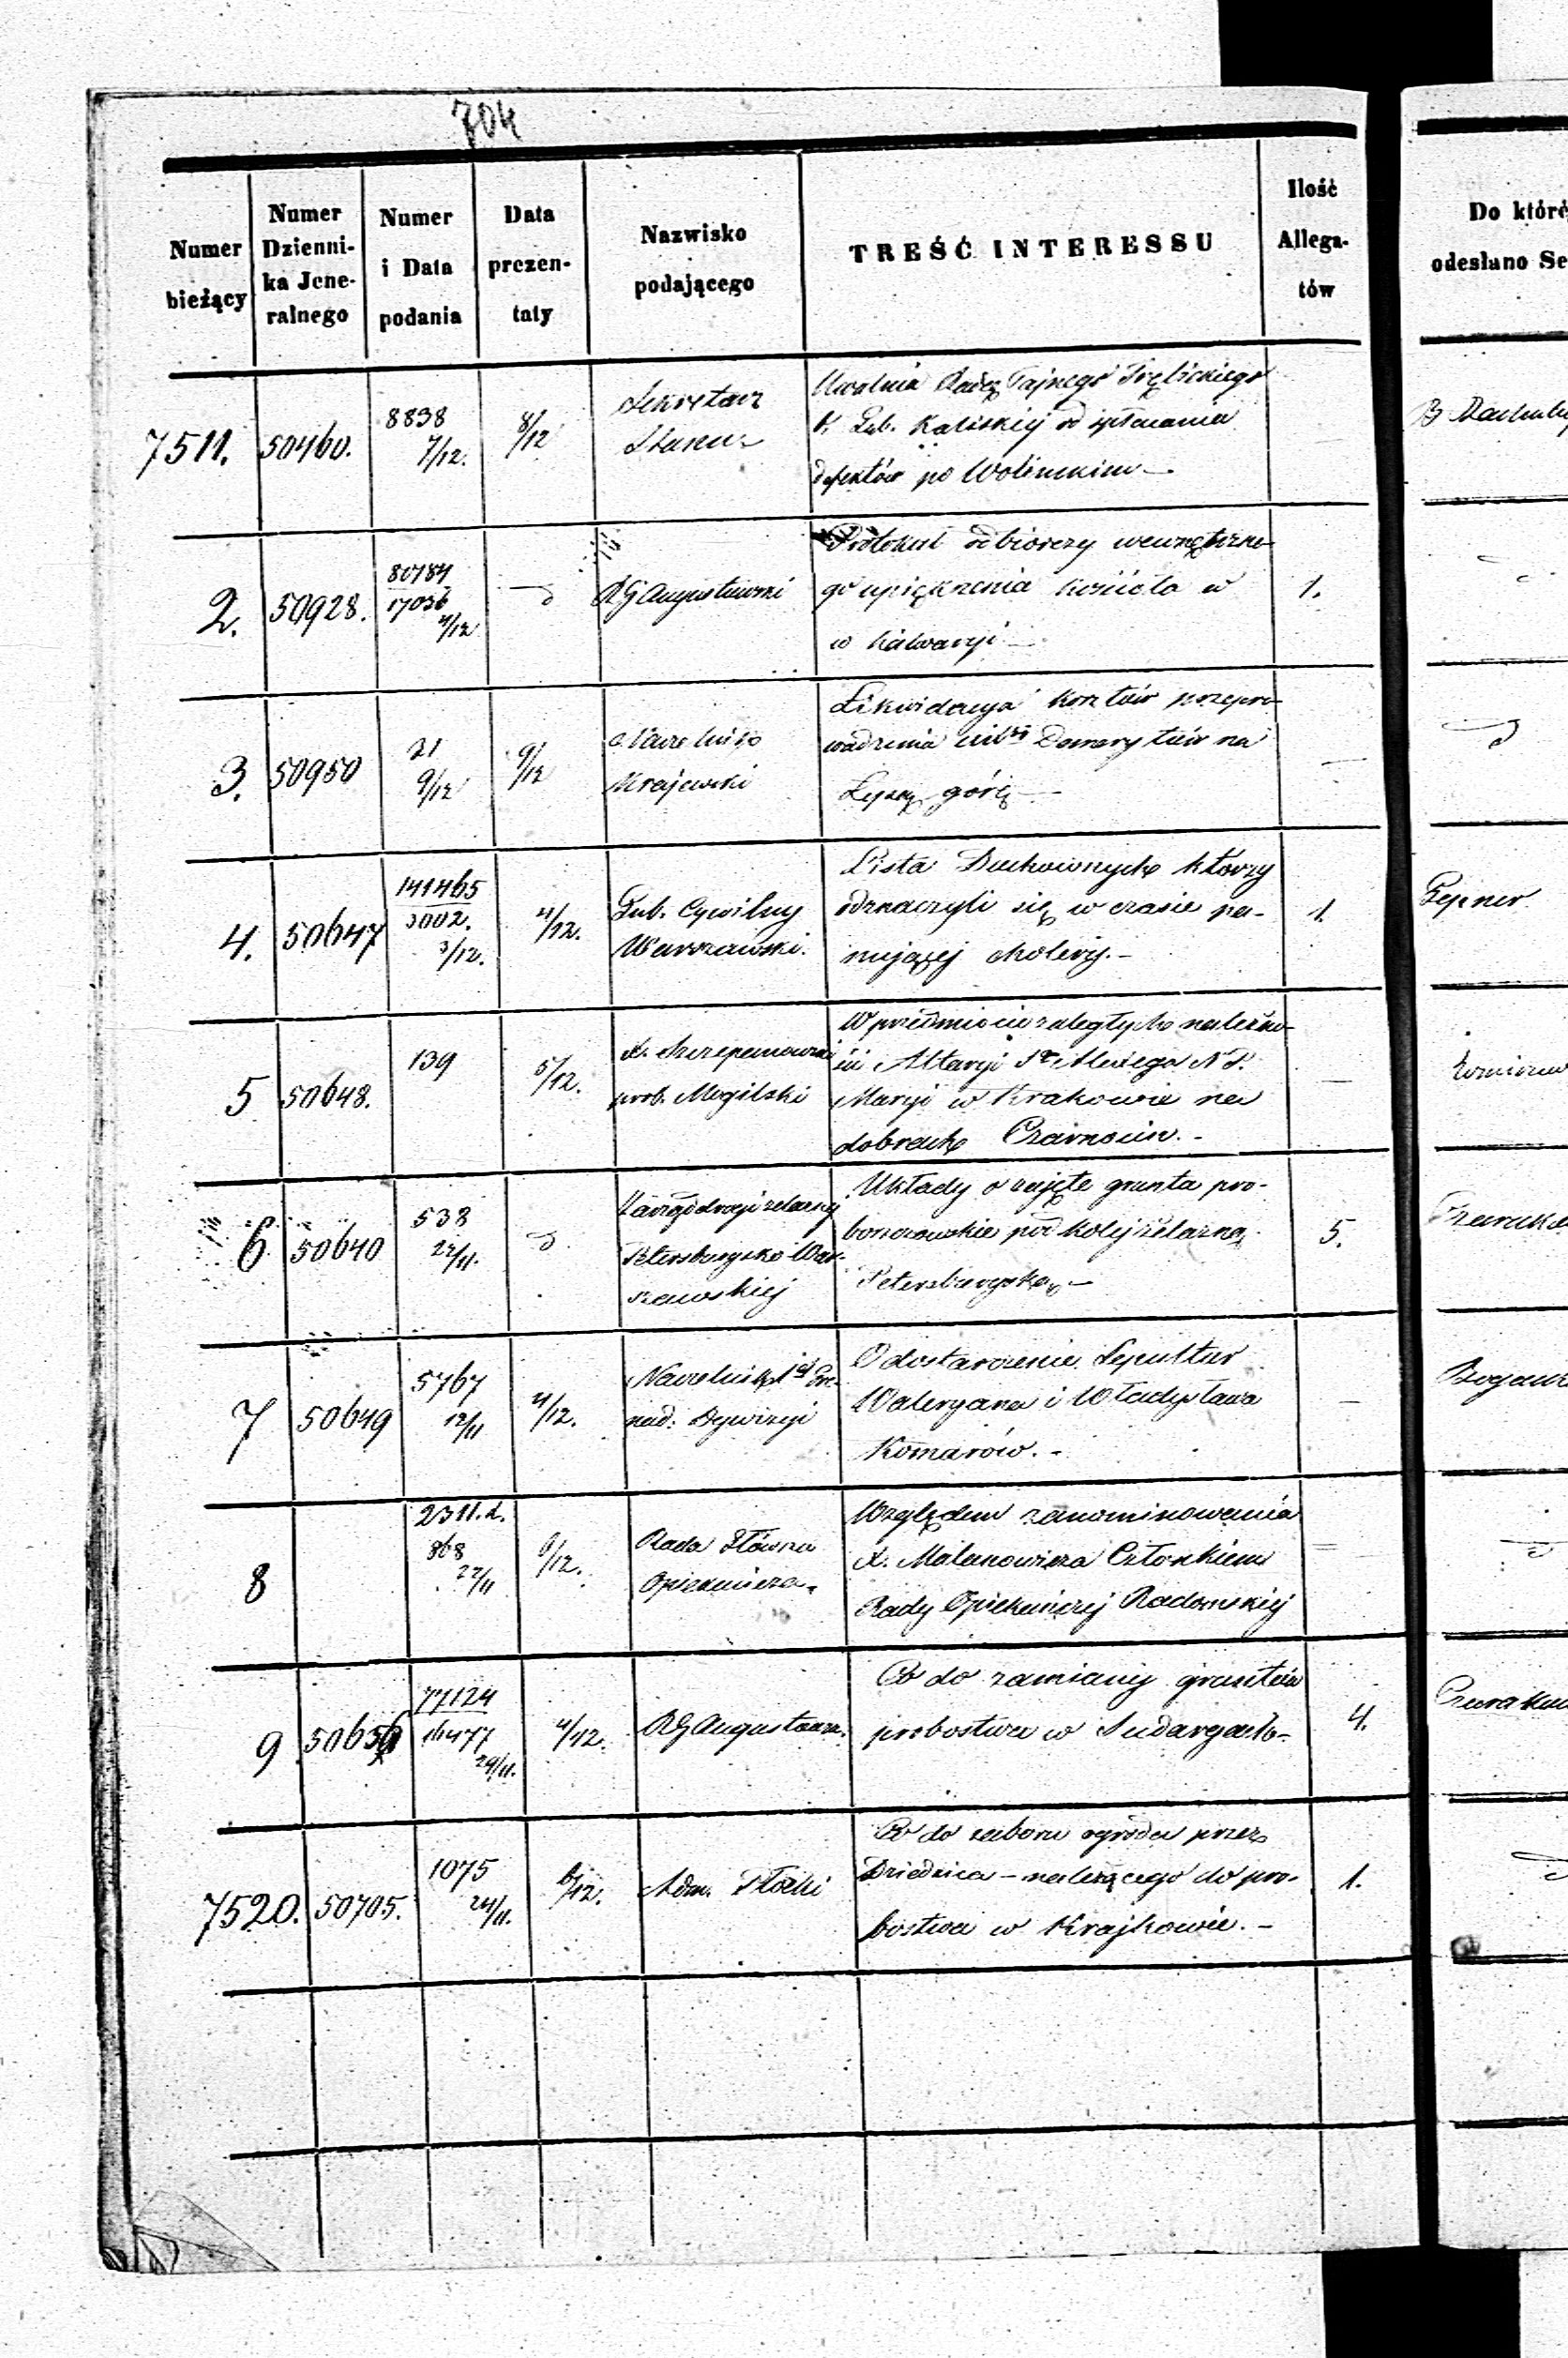 704
Numer bieżący
Numer Dzienni- ka Jene- ralnego
Numer i Data podania
Data prezen- taty
Nazwisko podającego
TREŚĆ INTERESSU
Ilość Allega- tów
Do któré
odesłano Se
7511. 50460. 8838 7/12. 8/12
Sekretarz
Stanu
Uwalnia Radcę Tajnego
G. Gub. Kaliskiej od
defektów po
2. 50928. 80184 17036 4/12 d
RG Augustowski
Protokuł odbiorczy wewnętrzne-
go upiększenia kościoła w
w Kalwaryi
1.
3. 50950 21 9/12 9/12
Naczelnik
Krajewski
Likwidacya kosztów przepro-
wadzenia Demerytów na
Łysą górę
4. 50647 141465 3002. 3/12. 4/12.
Gub. Cywilny
Warszawski.
Lista Duchownych którzy
odznaczyli się w czasie pa-
nującej cholery.
1.
Lepner
5 50648. 139 5/12.
X. Szczepanowski
prob. Mogilski
W przedmiocie zaległych należno-
ści Altaryi N. P.
Maryi w Krakowie na
dobrach Czarnocin.
6 50640 538 22/11. d
Zarząd drogi żelaznej
Petersbursko War-
szawskiej
Układy o zajęte grunta pro-
boszczowskie pod kolej żelazną
Petersburgską
5.
7 50649 5767 12/11 4/12.
Naczelnik 1ej Gre-
nad. Dywizyi
O dostarczenie Sepultur
Waleryana i Władysława
Komarów.
8 2311.d. 868 22/11 9/12.
Rada Główna
Opiekuńcza
Względem zanominowania
X. Malanowicza Członkiem
Rady Opiekuńczej Radomskiej
9 50656 77124 16477 29/11. 4/12.
RG Augustowski
Co do zamiany gruntów
probostwa w Sudargach
4.
7520. 50705. 1075 24/11. 6/12.
Adm. Płocki
Co do zaboru ogrodu przez
Dziedzica - należącego do pro-
bostwa w Krajkowie.
1.